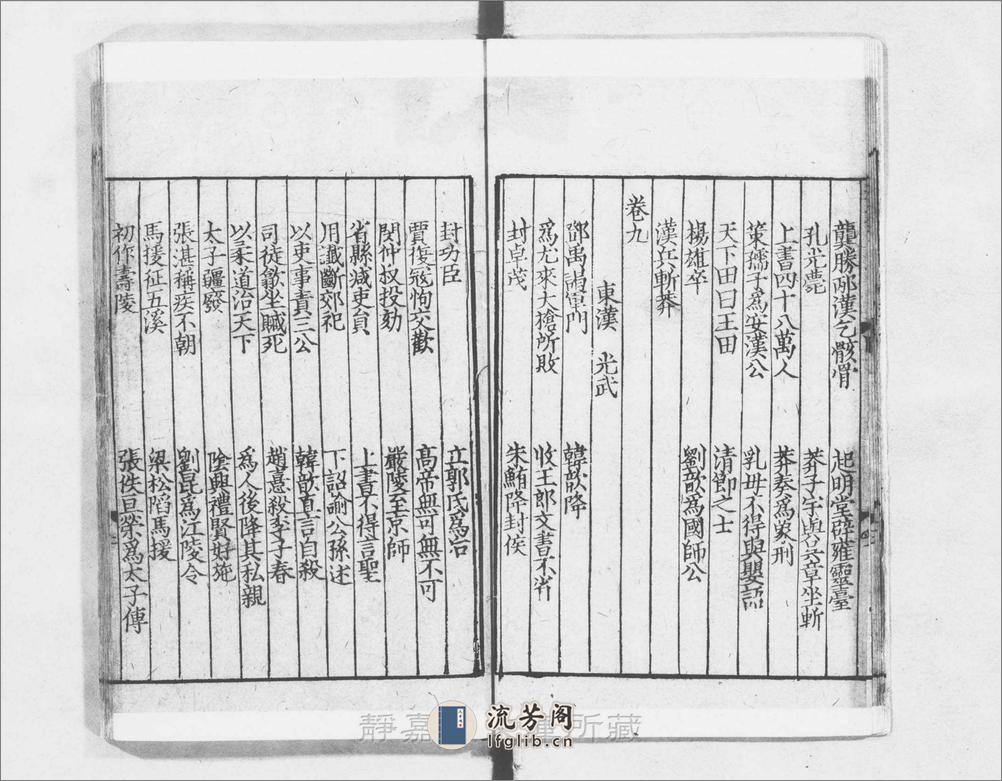 龔勝邴漢乞骸骨　起明堂辟雍靈臺
孔光薨　莽子宇與呂章坐斬
上書四十八萬人　莽奏爲象刑
策孺子爲安漢公　乳母不得與嬰語
天下田曰王田　清節之士
楊雄卒　劉歆爲國師公
漢兵斬莽
卷九
東漢　光武
鄧禹謁軍門　韓歆降
爲尤來大搶所敗　收王郎文書不省
封卓茂　朱鮪降封侯
封功臣　立郭氏爲后
賈復寇恂交歡　高帝無可無不可
閔仲叔投劾　嚴陵至京師
省縣減吏員　上書不得言聖
用讖斷郊祀　下詔諭公孫述
以吏事責三公　韓歆直言自殺
司徒歙坐贓死　趙憙殺李子春
以柔道治天下　爲人後降其私親
太子疆廢　陰興禮賢好施
張湛稱疾不朝　劉昆爲江陵令
馬援征五溪　梁松陷馬援
初作壽陵　張佚亘榮爲太子傅
靜嘉
所藏
流芳阁
lfglib.cn